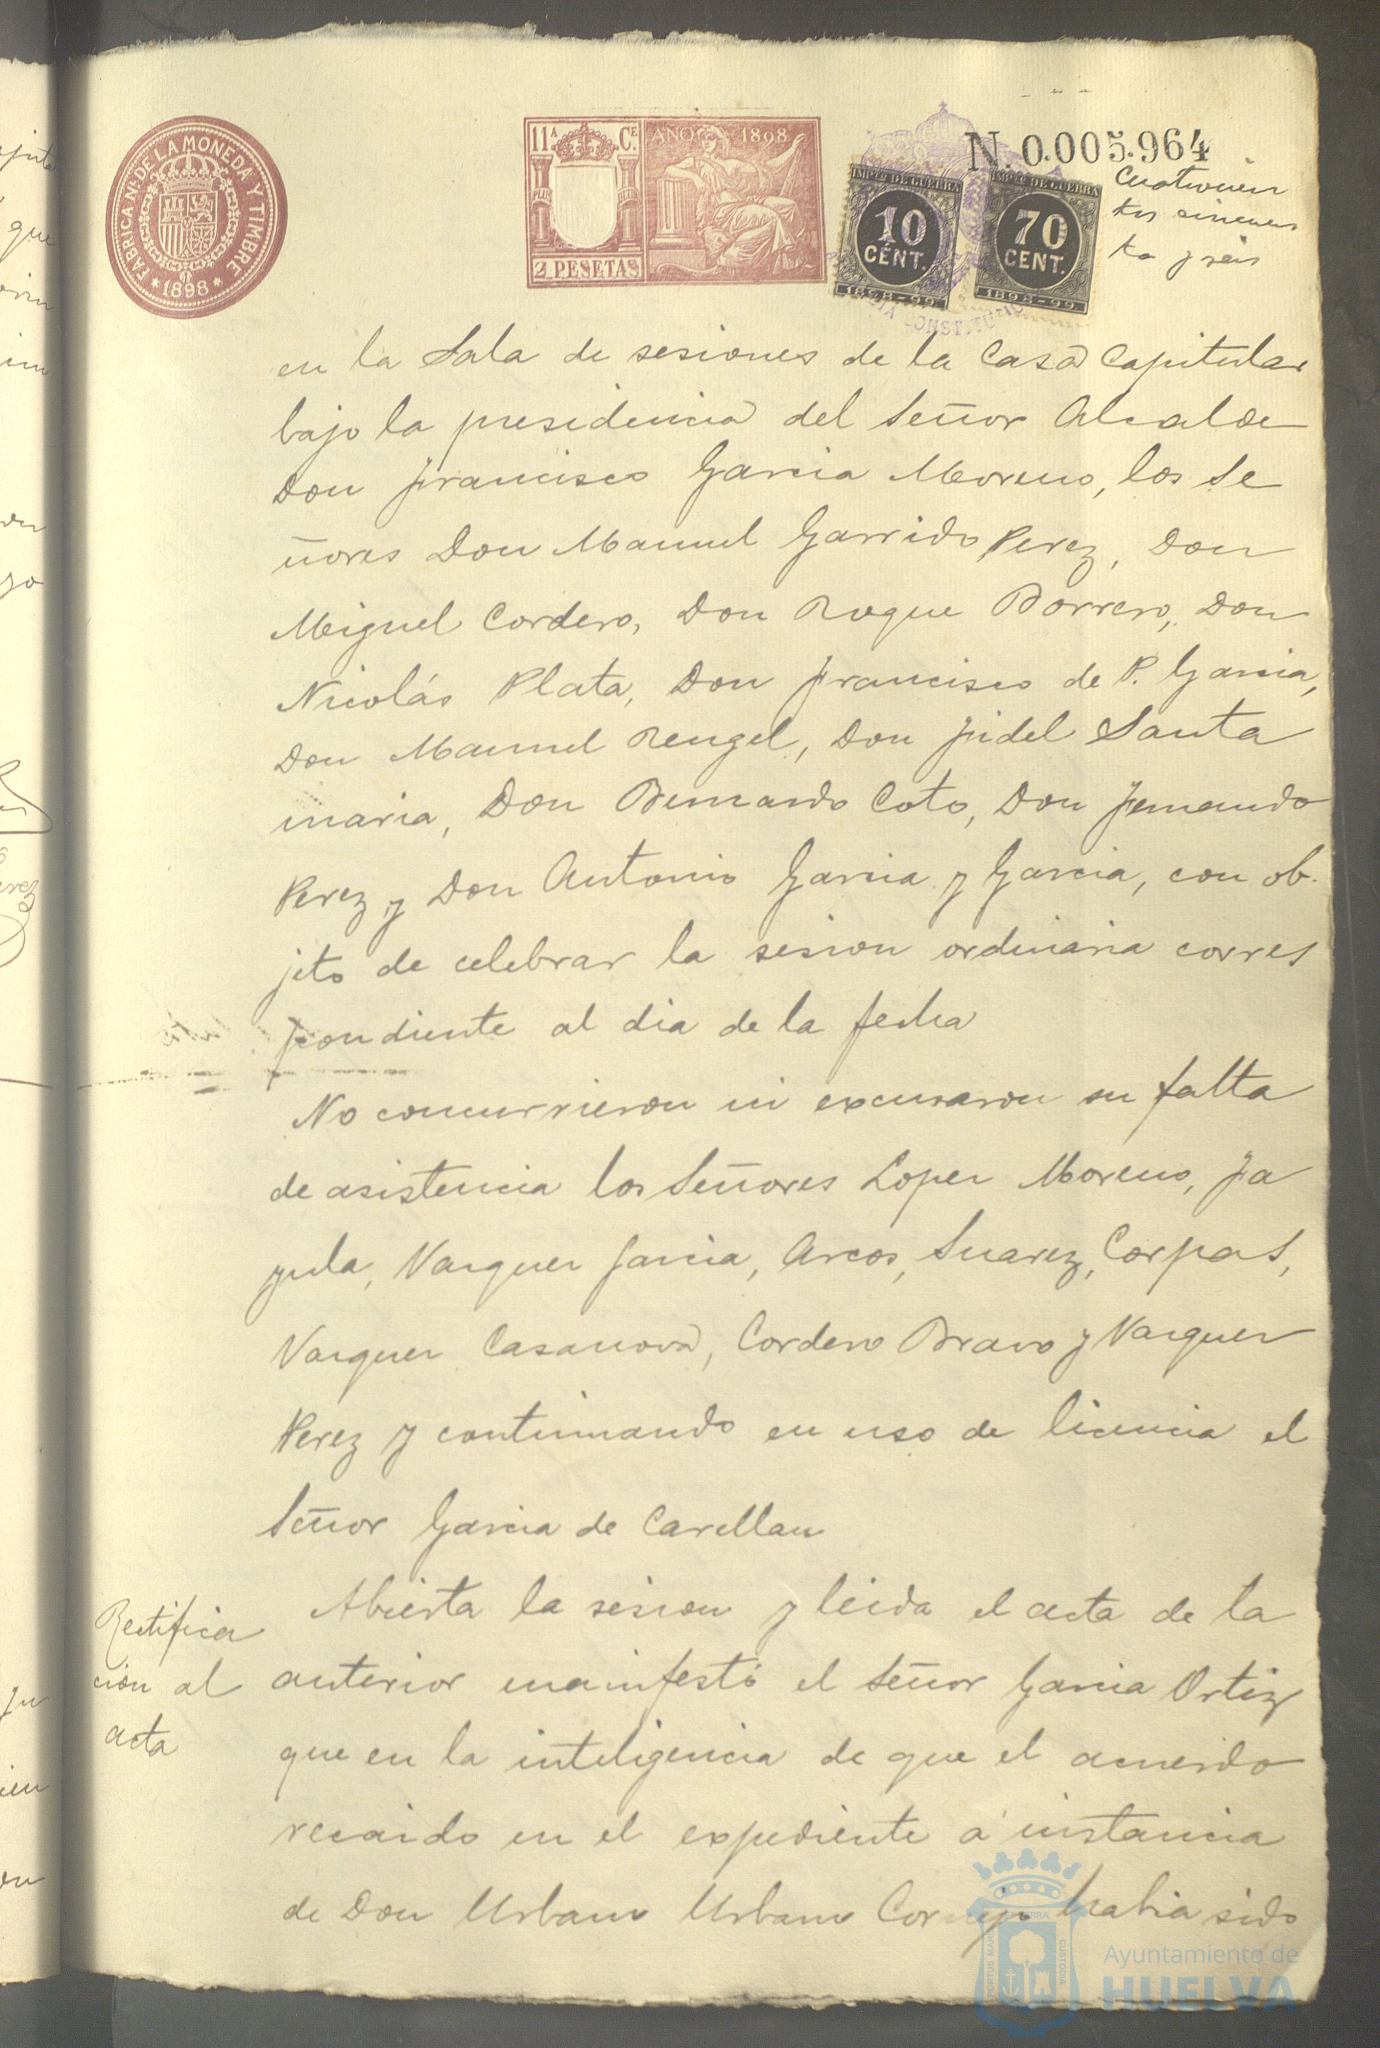 FABRICA Nal DE LA MONEDA Y TIMBRE
* 1898 *
11A Ce.
AÑO 1898
PLUS ULTRA
2 PESETAS
N. 0.005.964
IMPTO DE GUERRA
10
CÉNT.
1898-99
IMPTO DE GUERRA
70
CENT.
1898-99
CONSTITUCIO
Cuatrocien
tos cincuen
ta y seis
en la Sala de sesiones de la Casa Capitular
bajo la presidencia del Señor Alcalde
Don Francisco Garcia Moreno, los Se
ñores Don Manuel Garrido Perez, Don
Miguel Cordero, Don Roque Borrero, Don
Nicolás Plata, Don Francisco de P. Garcia,
Don Manuel Rengel, Don Fidel Santa
maria, Don Bernardo Coto, Don Fernando
Perez y Don Antonio Garcia y Garcia, con ob-
jeto de celebrar la sesion ordinaria corres
pondiente al dia de la fecha
No concurrieron ni excusaron su falta
de asistencia los Señores Lopez Moreno, Fa
yula, Vazquez Garcia, Arcos, Suarez, Corpas,
Vazquez Casanova, Cordero Bravo y Vazquez
Perez y continuando en uso de licencia el
Señor Garcia de Carellan
Rectifica
cion al
acta
Abierta la sesion y leida el acta de la
anterior manifestó el Señor Garcia Ortiz
que en la inteligencia de que el acuerdo
recaido en el expediente á instancia
de Don Urbano Urbano Cornejo habia sido
Ayuntamiento de
HUELVA